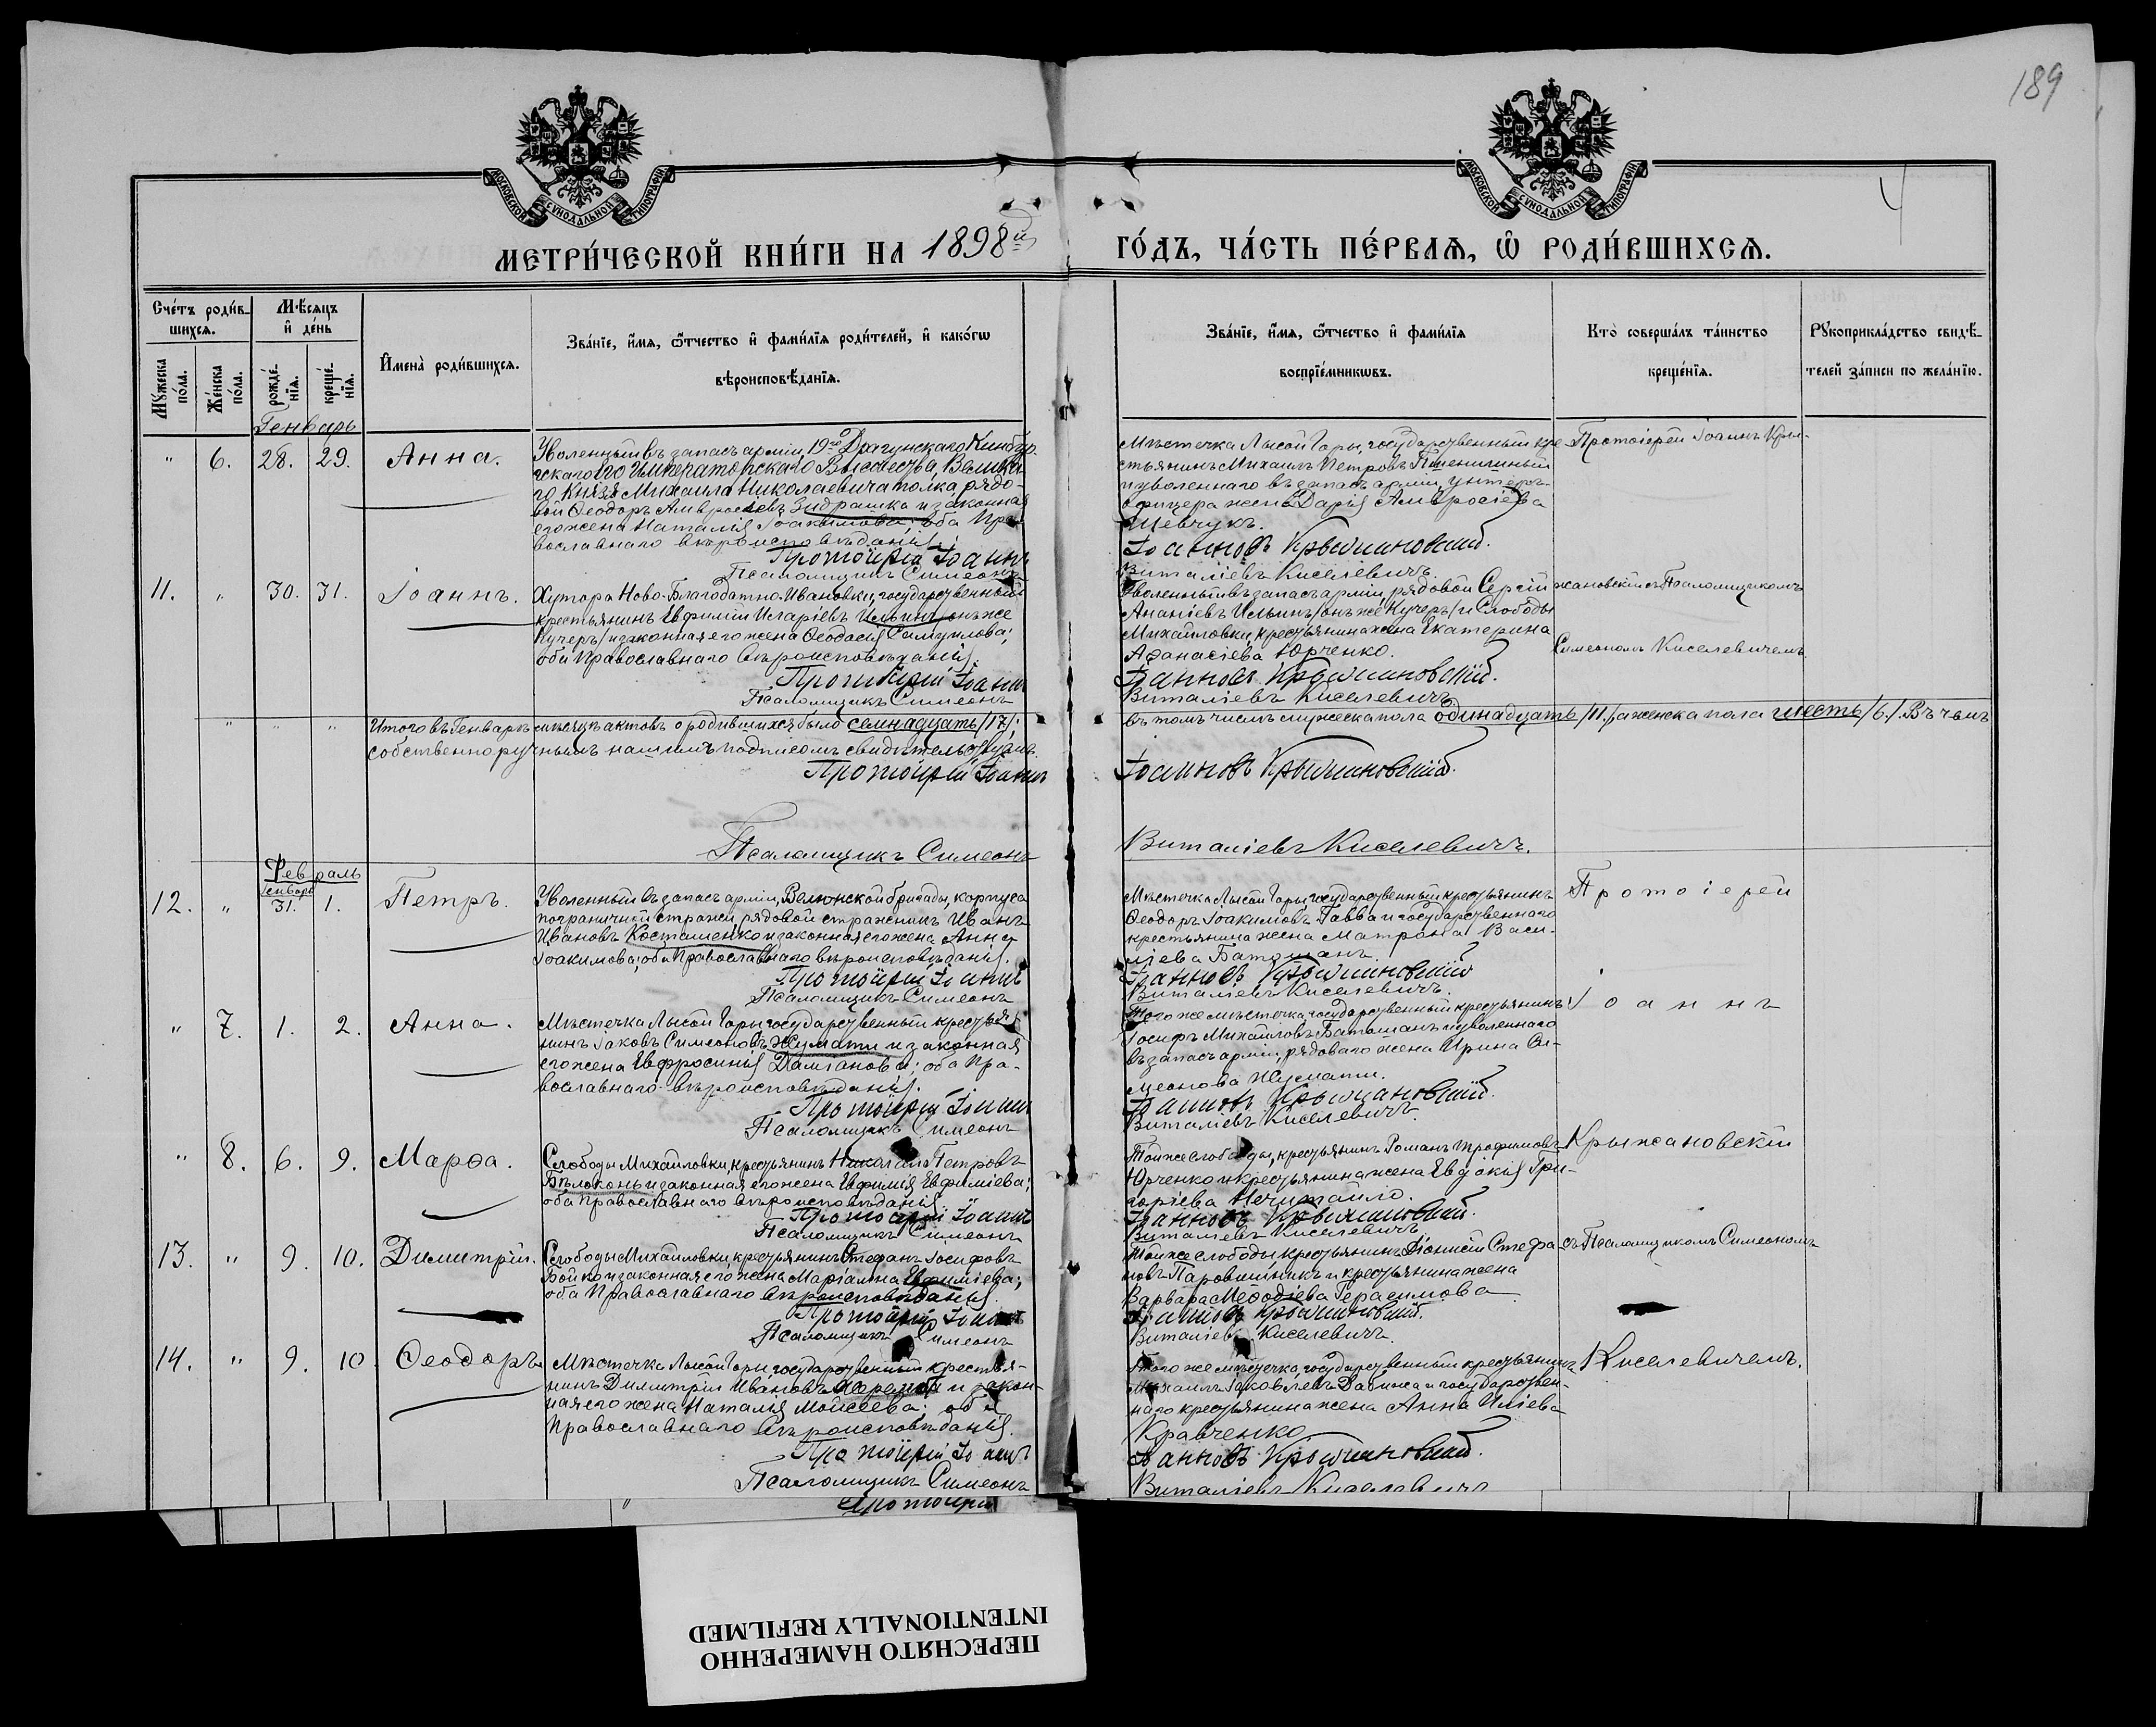 189
МОСКОВСКОЙ СѴНОДАЛЬНОЙ ТИПОГРАФІИ
МОСКОВСКОЙ СѴНОДАЛЬНОЙ ТИПОГРАФІИ
МЕТРИ́ЧЕСКОЙ КНИ́ГИ НА 1898й ГО́ДЪ, ЧА́СТЬ ПЕ́РВАѦ, Ѡ РОДИ́ВШИХСѦ.
Счетъ родив-
шихсѧ.
Мѣсяцъ
и день
Мужеска
пола.
Женска
пола.
рожде-
нія.
креще-
нія.
Имена родившихсѧ.
Званіе, имѧ, ѿчество и фамиліѧ родителей, и какогѡ
вѣроисповѣданіѧ.
Званіе, имѧ, ѿчество и фамиліѧ
воспріемниковъ.
Кто совершалъ таинство
крещеніѧ.
Рукоприкладство свидѣ-
телей записи по желанію.
Генварь
" 6. 28. 29. Анна.
Уволенный въ запасъ арміи, 19го Драгунскаго Кинбур-
нскаго Его Императорскаго Высочества, Велика-
го Князя Михаила Николаевича полка рядо-
вой Ѳеодоръ Амвросіевъ Зидрашка и законная
его жена Наталія Іоакимова; оба Пра-
вославнаго вѣроисповѣданія.
Протоіерей Іоаннъ
Псаломщикъ Симеонъ
Мѣстечка Лысой Горы, государственный кре-
стьянинъ Михаилъ Петровъ Пшеничный
и уволеннаго въ запасъ арміи, унтеръ-
офицера жена Дарія Амвросіева
Шевчукъ.
Іоанновъ Крыжановскій.
Виталіевъ Киселевичъ.
Протоіерей Іоаннъ Кры-
11. " 30. 31. Іоаннъ.
Хутора Ново-Благодатно-Ивановки, государственный
крестьянинъ Евфимій Иларіевъ Ильинъ /онъ же
Кучеръ/ и законная его жена Ѳеодосія Самуилова;
оба Православнаго вѣроисповѣданія.
Протоіерей Іоаннъ
Псаломщикъ Симеонъ
Уволенный въ запасъ арміи, рядовой Сергій
Ананіевъ Ильинъ /онъ же Кучеръ/ и Слободы
Михайловки, крестьянина жена Екатерина
Аѳанасіева Юрченко.
Іоанновъ Крыжановскій.
Виталіевъ Киселевичъ.
жановскій съ Псаломщикомъ
Симеономъ Киселевичемъ.
" " " Итого въ Генварѣ мѣсяцѣ актовъ о родившихся было семнадцать /17/; въ томъ числѣ мужеска пола одинадцать /11./, а женска пола шесть /6./. Въ чемъ
собственноручнымъ нашимъ подписомъ свидѣтельствуемъ.
Протоіерей Іоаннъ Іоанновъ Крыжановскій.
Псаломщикъ Симеонъ Виталіевъ Киселевичъ.
Февраль
Генваря
12. " 31. 1. Петръ.
Уволенный въ запасъ арміи, Велюнской бригады, корпуса
пограничной стражи, рядовой стражникъ Иванъ
Ивановъ Косташенко и законная его жена Анна
Іоакимова; оба Православнаго вѣроисповѣданія.
Протоіерей Іоаннъ
Псаломщикъ Симеонъ
Мѣстечка Лысой Горы, государственный крестьянинъ
Ѳеодоръ Іоакимовъ Гавва и государственнаго
крестьянина жена Матрона Васи-
ліева Баташанъ.
Іоанновъ Крыжановскій
Виталіевъ Киселевичъ.
Протоіерей
" 7. 1. 2. Анна.
Мѣстечка Лысой Горы, государственный крестья-
нинъ Іаковъ Симеоновъ Жумати и законная
его жена Евфросинія Даміанова; оба Пра-
вославнаго вѣроисповѣданія.
Протоіерей Іоаннъ
Псаломщикъ Симеонъ
Того же мѣстечка, государственный крестьянинъ
Іосифъ Михаиловъ Баташанъ и уволеннаго
въ запасъ арміи, рядоваго жена Ирина Си-
меонова Жумати.
Іоанновъ Крыжановскій.
Виталіевъ Киселевичъ.
Іоаннъ
" 8. 6. 9. Марѳа.
Слободы Михайловки, крестьянинъ Николай Петровъ
Бѣлоконь и законная его жена Евфимія Евфиміева;
оба Православнаго вѣроисповѣданія.
Протоіерей Іоаннъ
Псаломщикъ Симеонъ
Той же слободы, крестьянинъ Романъ Трофимовъ
Юрченко и крестьянина жена Евдокія Гри-
горіева Нечитайло.
Іоанновъ Крыжановскій.
Виталіевъ Киселевичъ
Крыжановскій
13. " 9. 10. Димитрій.
Слободы Михайловки, крестьянинъ Стефанъ Іосифовъ
Бойко и законная его жена Маріамна Евфиміева;
оба Православнаго вѣроисповѣданія.
Протоіерей Іоаннъ
Псаломщикъ Симеонъ
Той же слободы, крестьянинъ Діонисій Стефа-
новъ Паровшникъ и крестьянина жена
Варвара Меѳодіева Герасимова
Іоанновъ Крыжановскій.
Виталіевъ Киселевичъ.
съ Псаломщикомъ Симеономъ
14. " 9. 10 Ѳеодоръ.
Мѣстечка Лысой Горы, государственный крестья-
нинъ Димитрій Ивановъ и закон-
ная его жена Наталія Моисеева; оба
Православнаго вѣроисповѣданія.
Протоіерей Іоаннъ
Псаломщикъ Симеонъ
Того же мѣстечка, государственный крестьянинъ
Михаилъ Іаковлевъ Дабижа и государствен-
наго крестьянина жена Анна Иліева
Кравченко
Іоанновъ Крыжановскій.
Виталіевъ Киселевичъ
Киселевичемъ.
Протоіерей
ПЕРЕСНЯТО НАМЕРЕННО
INTENTIONALLY REFILMED